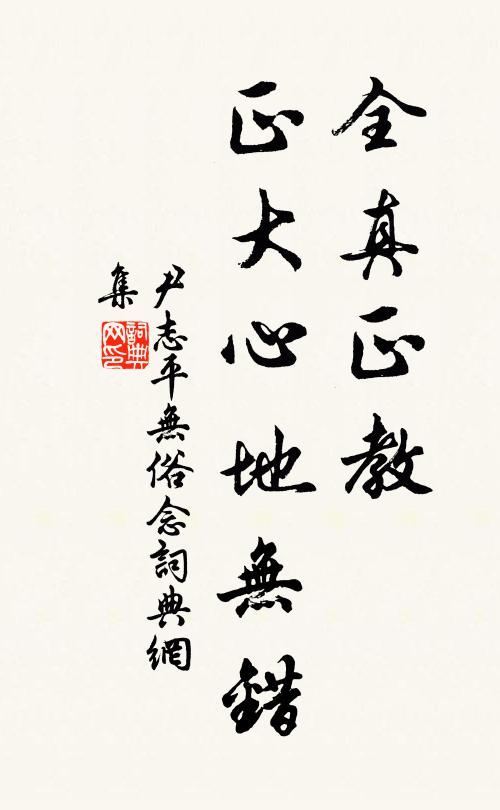 全真正教
正大心地無錯
尹志平無俗念詞典網
集
詞典网印